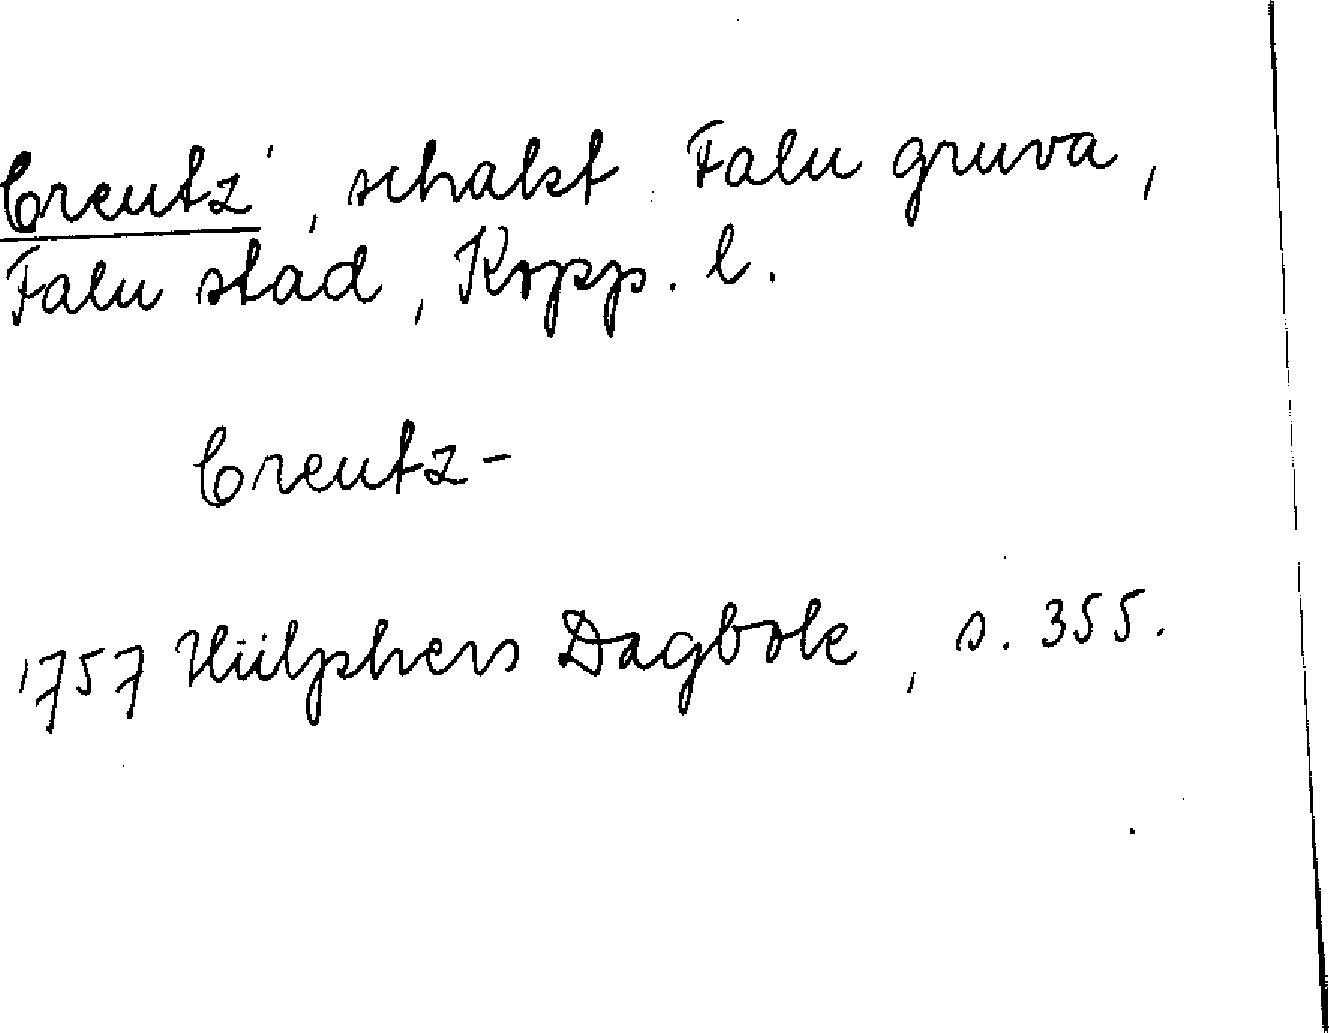 Creutz', schakt Falu gruva,
Falu stad, Kopp. l.
Creutz-
1757 Hülphers Dagbok, s. 355.